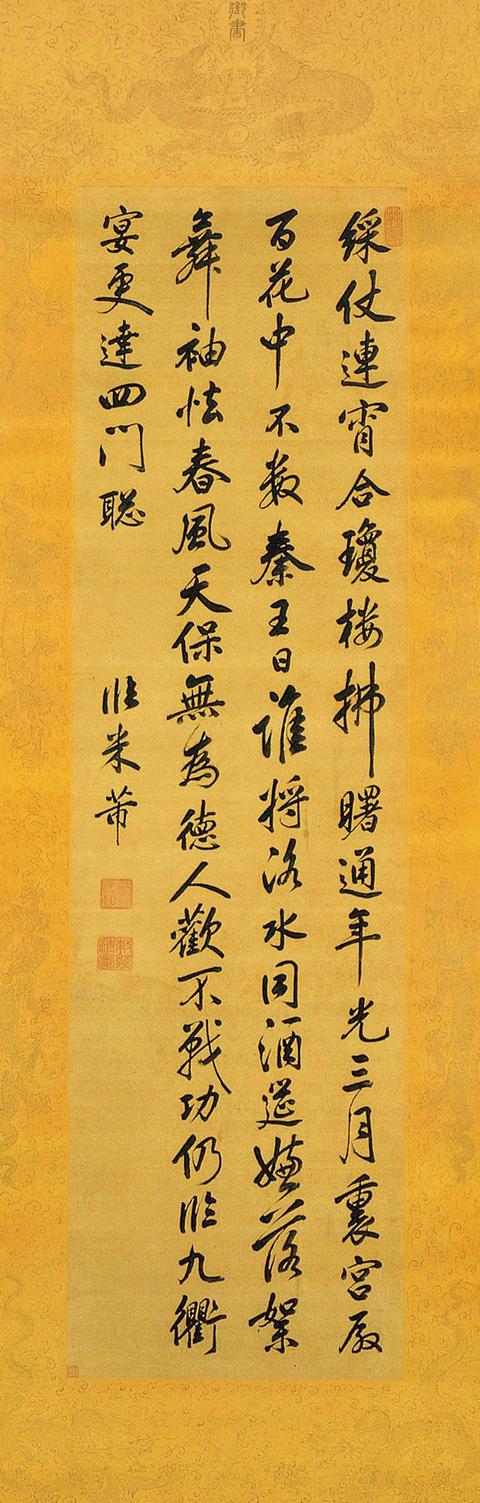 御書
綵仗連宵合瓊楼拂曙通年光三月裏宮殿
百花中不数秦王日誰將洛水同酒筵嫌落絮
舞袖怯春風天保無為德人歡不戰功仍臨九衢
宴更達四門聡
臨米芾